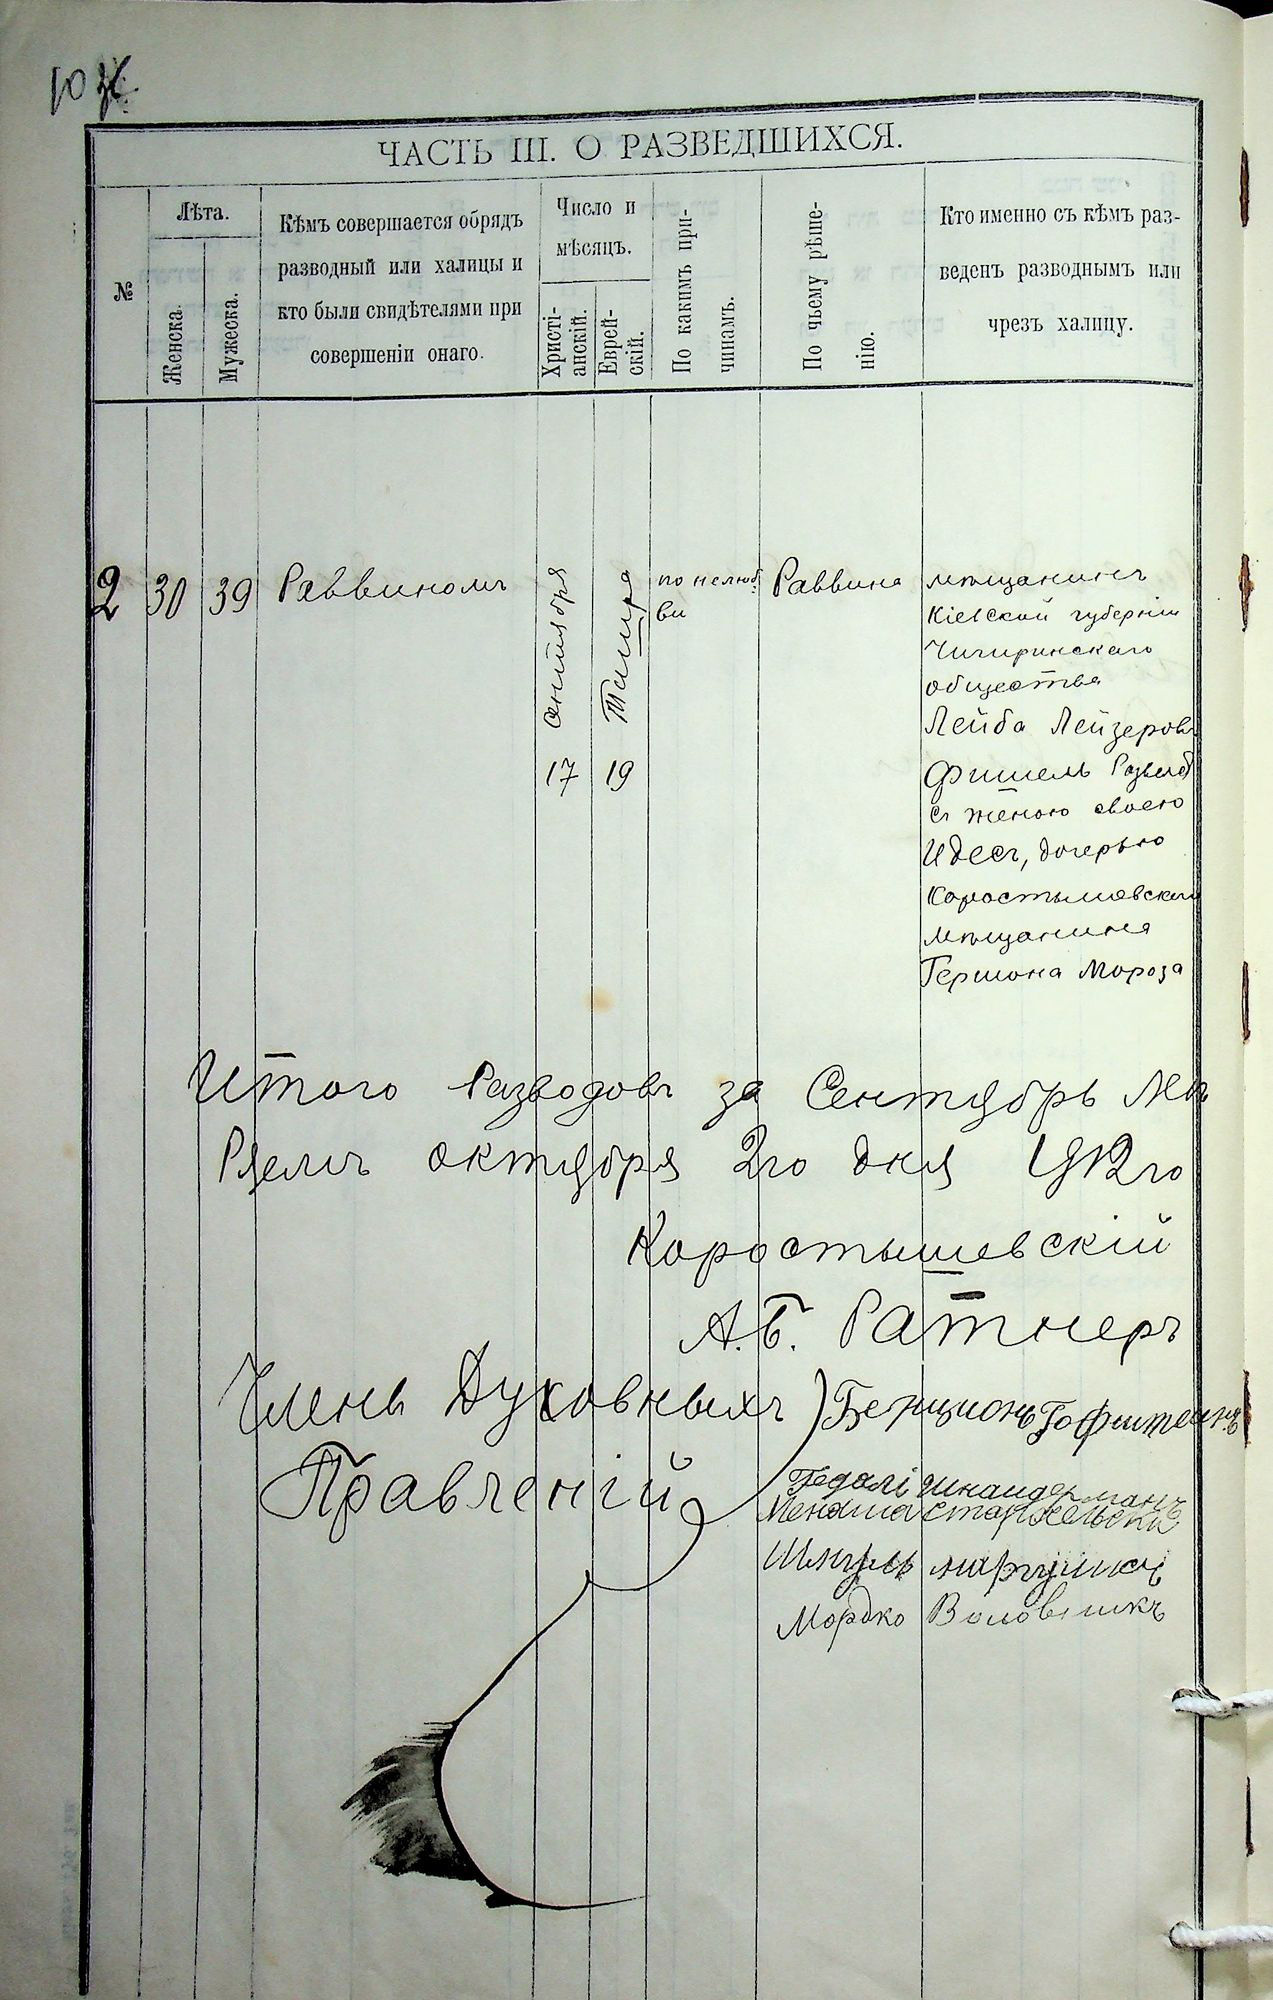 ЧАСТЬ III. О РАЗВЕДШИХСЯ.
№
Лѣта.
Женска.
Мужеска.
Кѣмъ совершается обрядъ
разводный или халицы и
кто были свидѣтелями при
совершеніи онаго.
Число и
мѣсяцъ.
Христі-
анскій.
Еврей-
скій.
По какимъ при-
чинамъ.
По чьему рѣше-
нію.
Кто именно съ кѣмъ раз-
веденъ разводнымъ или
чрезъ халицу.
2
30
39
Раввиномъ
Сентября
17
Тишря
19
по нелюб
ви
Раввина
мѣщанинъ
Кіевской губерніи
Чигиринскаго
общества
Лейба Лейзеровъ
Фишель Развелс
съ женою своею
Идесъ, дочерью
Коростышевскаго
мѣщанина
Гершона Мороза
Итого Разводовъ за Сентябрь
октября 2го дня
Коростышевскій
А.Б. Ратнеръ
Члены Духовныхъ
Правленій
Бенціонъ Гофштеинъ
Гедалі Шнаидерманъ
Менаша
Шмуль
Мордко Воловникъ